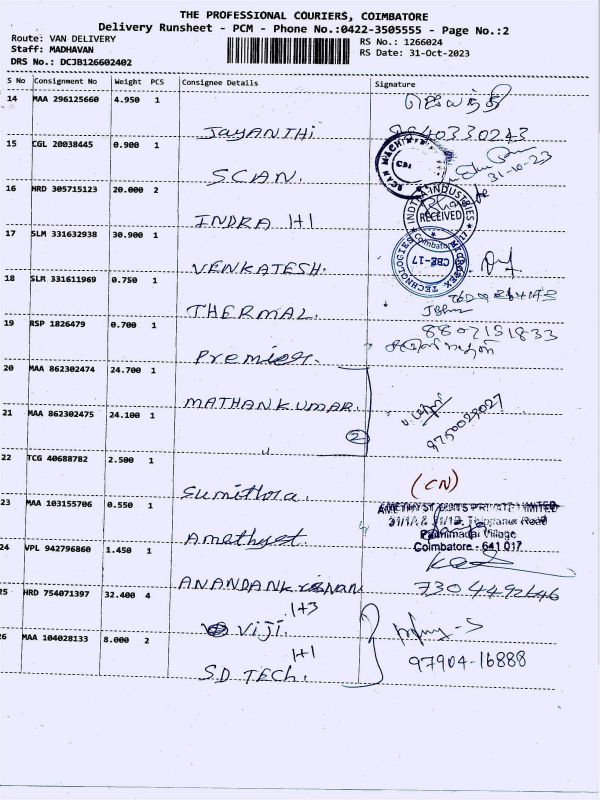 THE PROFESSIONAL COURIERS, COIMBATORE
Delivery Runsheet - PCM - Phone No.:0422-3505555 - Page No.:2
Route: VAN DELIVERY
RS No.: 1266024
Staff: MADHAVAN
RS Date: 31-Oct-2023
DRS No.: DCJB126602402
S No Consignment No Weight PCS Consignee Details Signature
14 MAA 296125660 4.950 1
JAYANTHi 8640330243
15 CGL 20038445 0.900 1
SCAN. 31-10-23
16 HRD 305715123 20.000 2
INDRA 1+1
INDIRA INDUSTRIES RECEIVED
17 SLM 331632938 30.900 1
VENKATESH.
TECHNOLOGIES Coimbatore CBE-17
18 SLM 331611969 0.750 1
THERMAL.
19 RSP 1826479 0.700 1
8807151833
Premier.
20 MAA 862302474 24.700 1
MATHANKUMAR.
21 MAA 862302475 24.100 1
2
9750029027
"
22 TCG 40688782 2.500 1
Sumithra. (CN)
23 MAA 103155706 0.550 1
AMETHYST DUITS PRIVATE LIMITED
31/1A & 31/12, Thippanur Road
Palnimadai Village
Coimbatore - 641 017
Amethyst
24 VPL 942796860 1.450 1
ANANDANKrisHNAN 7304492646
25 HRD 754071397 32.400 4
1+3
Viji.
26 MAA 104028133 8.000 2
1+1
97904-16888
S.D TECH.